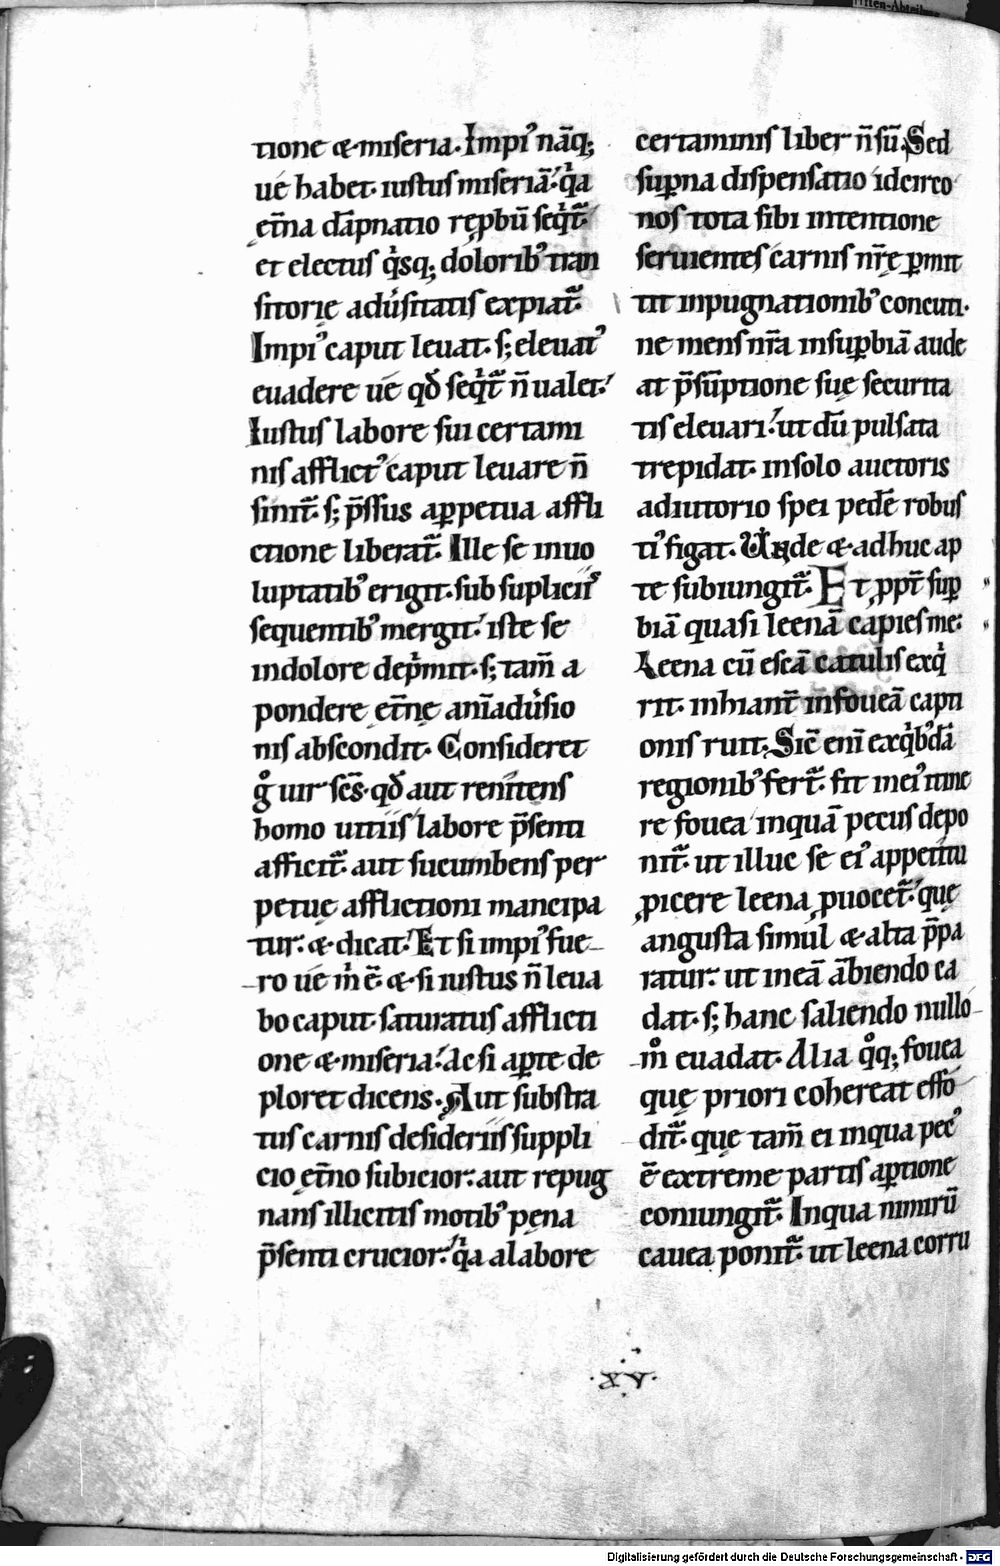 tione & miseria. Impi᾽ nāq;
uę́ habet. iustus miseriā. qͥa
ęt̄na dāpnatio rep̱bū seqͥt᷑
et electus qͥsq; dolorib᾽ tran
sitorię adúsitatis expiat᷑.
Impi᾽ caput leuat. s; eleuat᾽
euadere ue qđ seqͥt᷑ n̄ ualet.
Iustus labore sui certami
nis afflict᾽ caput leuare n̄
sinit᷑. s; p̄ssus a ꝑpetua affli
ctione liberat᷑. Ille se inuo
luptatib᾽ erigit. sub supliciis
sequentib᾽ mergit. iste se
indolore depͥmit. s; tam̄ a
pondere ęt̄nę anīadūsio
nis abscondit. Consideret
gͦ uir sc̄s. qđ aut renitens
homo uitiis labore p̄senti
afficit᷑. aut sucumbens per
petuę afflictioni mancipa
tur. & dicat. Et si impi᾽ fue
ro ue mͥ ē. & si iustus n̄ leua
bo caput. saturatus afflicti
one & miseria. Ac si aꝑte de
ploret dicens. Aut substra
tus carnis desideriis suppli
cio ęt̄no subicior. aut repug
nans illicitis motib᾽ pęna
p̄senti crucior. qͥa a labore
certaminis liber n̄ sū. Sed
suꝑna dispensatio idcirco
nos tota sibi intentione
seruientes carnis nr̄ę ꝑmit
tit inpugnationib᾽ concuti.
ne mens nr̄a insuꝑbiā aude
at p̄sūptione suę securita
tis eleuari. ut dū pulsata
trepidat. insolo auctoris
adiutorio spei pedē robus
ti᾽ figat. Unde & adhuc ap
te subiungit᷑. Et ꝓpt̄ suꝑ
biā quasi leenā capies me.
Leena cū escā catulis exqͥ
rit. inhiant᷑ infoueā capti
onis ruit. Sic̄ eni᷑ exqͥb᾽dā
regionib᾽ fert᷑. fit inei᾽ itine
re fouea inquā pecus depo
nit᷑. ut illuc se ei᾽ appetitu
ꝓicere leena ꝓuocet᷑. quę
angusta simul & alta p̄pa
ratur. ut ineā ābiendo ca
dat. s; hanc saliendo nullo
mͦ euadat. Alia qͦq; fouea
quę priori cohereat effo
dit᷑. que tam̄ ei inqua pec᾽
ē extreme partis aꝑtione
coniungit᷑. Inqua nimirū
cauea ponit᷑. ut leena corru
.xv.
Digitalisierung gefördert durch die Deutsche Forschungsgemeinschaft - DFG